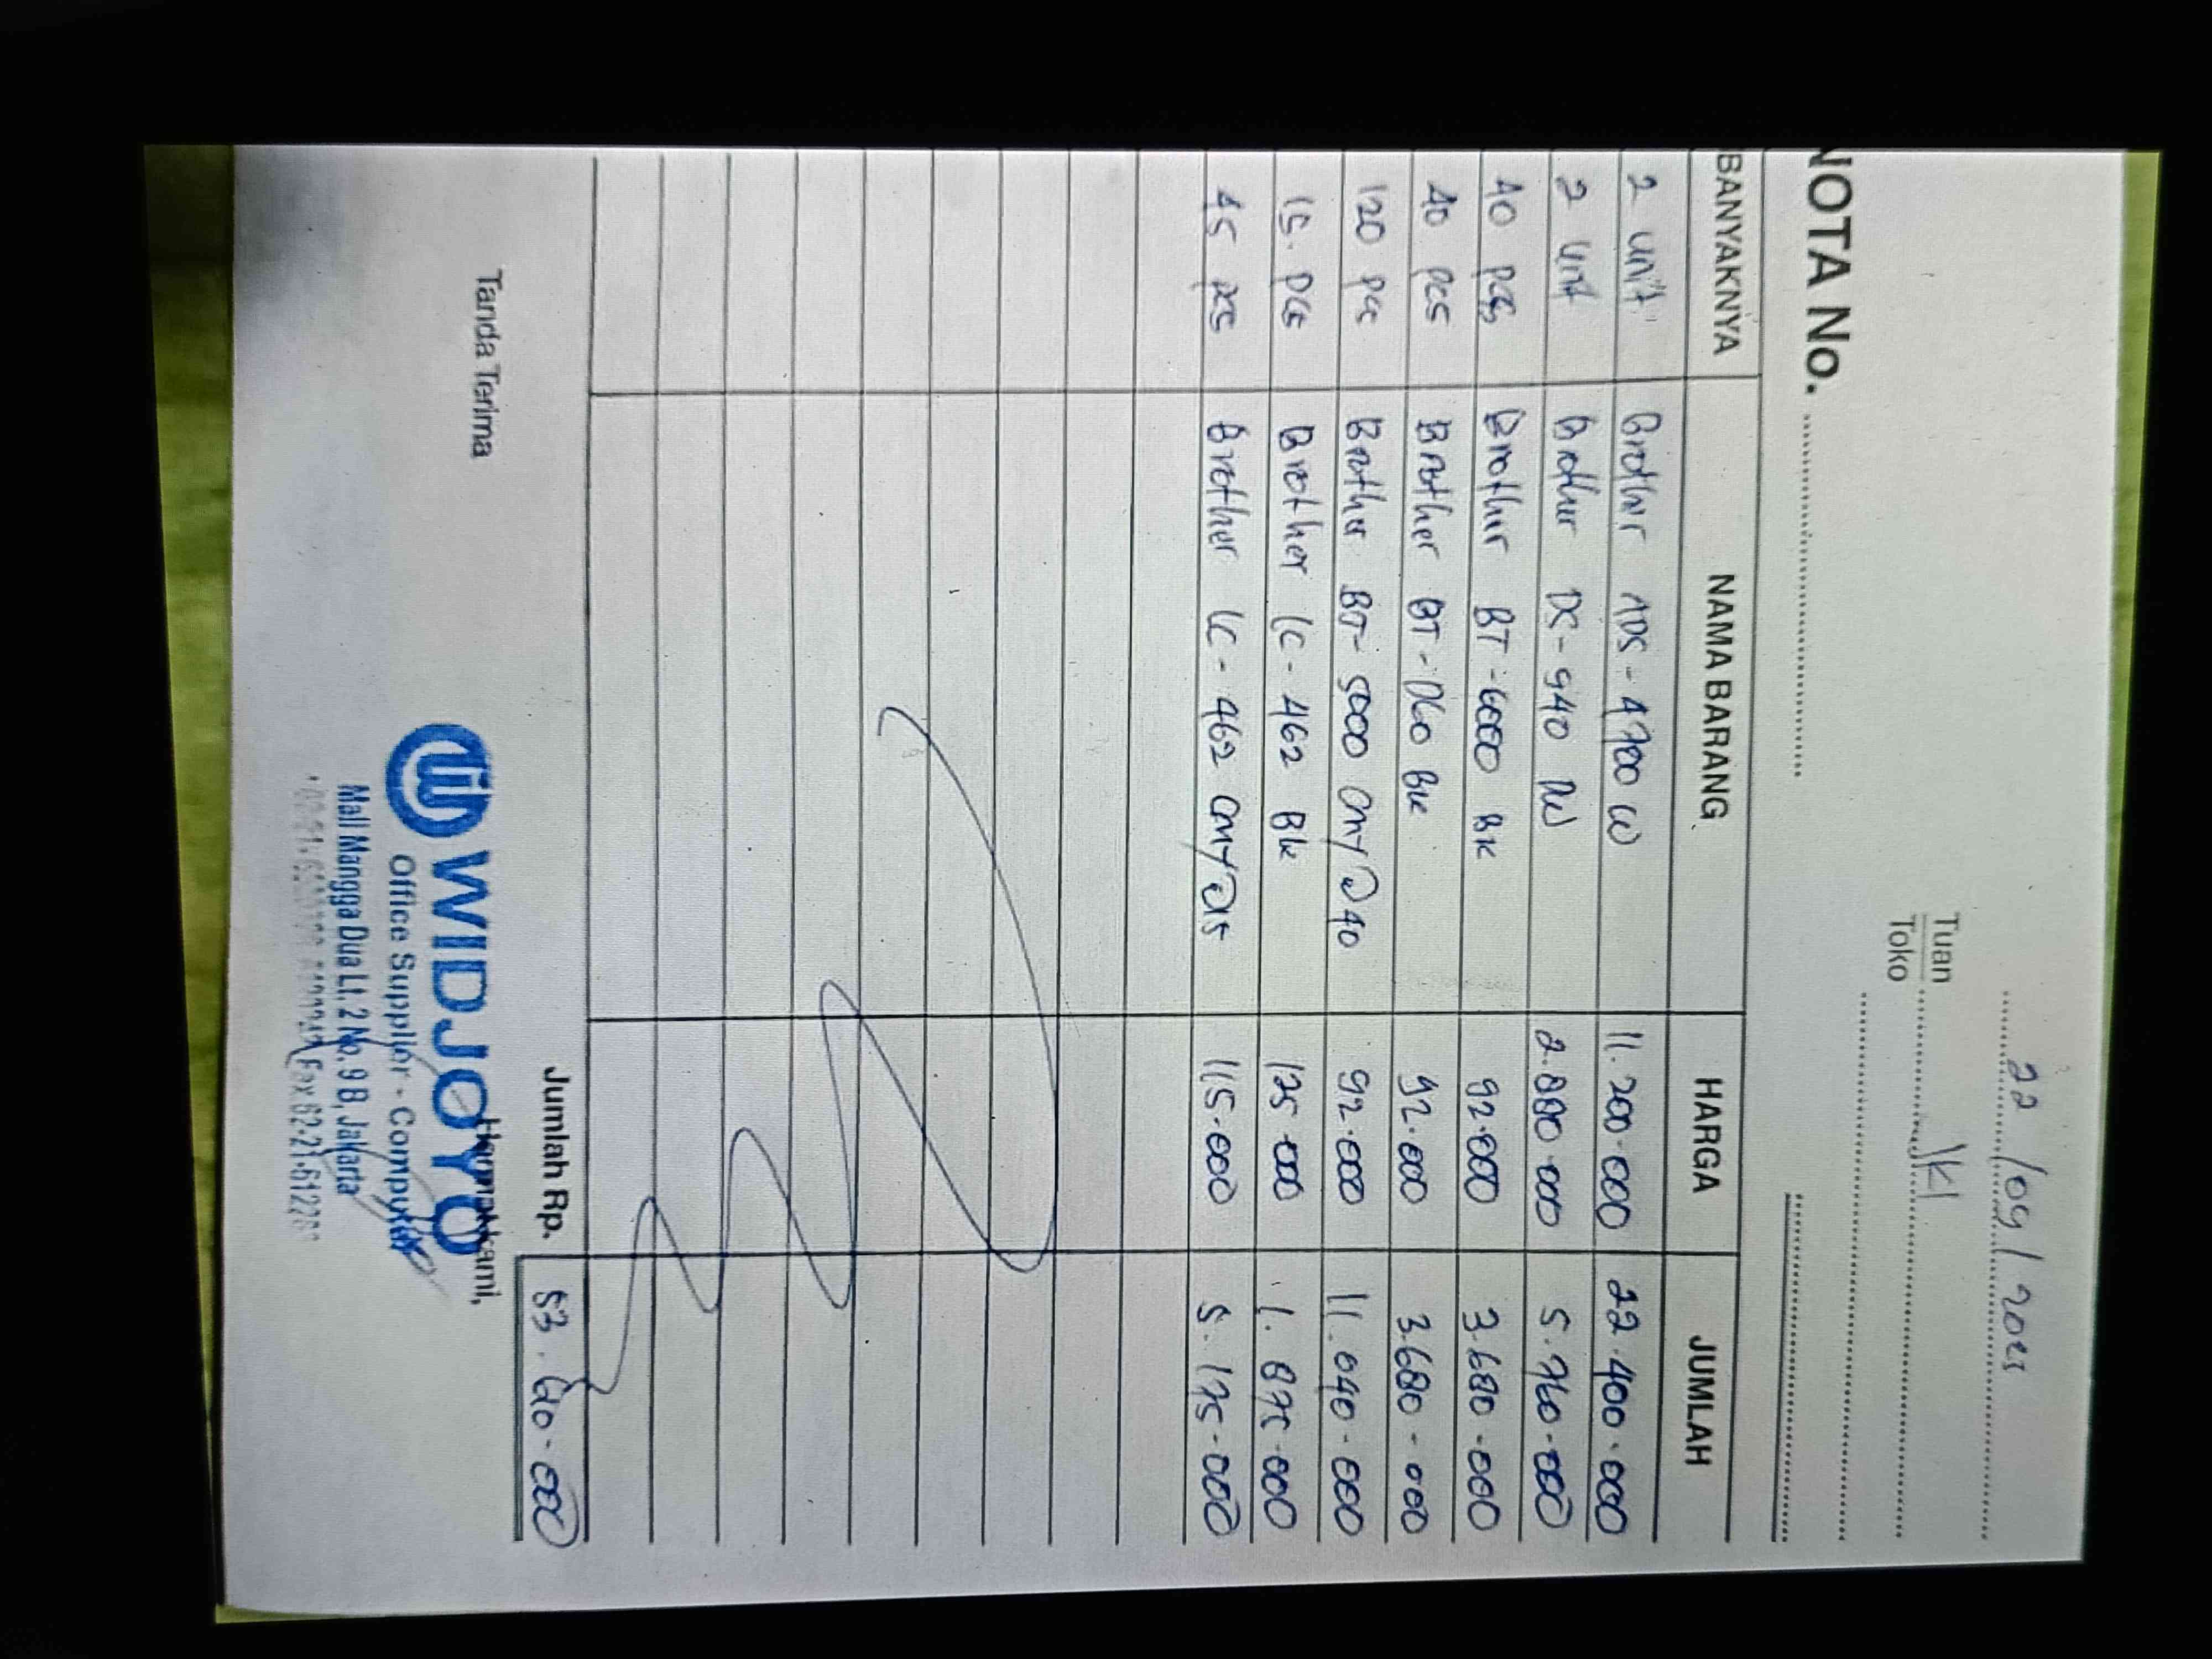 22 / 09 / 2025
Tuan JKI
Toko
NOTA No.
BANYAKNYA NAMA BARANG HARGA JUMLAH
2 unit Brother ADS-4700 W 11.200.000 22.400.000
2 unit Brother DS-940 DW 2.880.000 5.760.000
40 pcs Brother BT-6000 BK 92.000 3.680.000
40 pcs Brother BT-D60 BK 92.000 3.680.000
120 pcs Brother BT-5000 CMY @ 40 92.000 11.040.000
15 pcs Brother LC-462 Bk 125.000 1.875.000
45 pcs Brother LC-462 CMY @ 15 115.000 5.175.000
Jumlah Rp. 53.610.000
Tanda Terima Hormat kami,
WIDJOYO
Office Supplier - Computer
Mall Mangga Dua Lt. 2 No. 9 B, Jakarta
Fax 62-21-